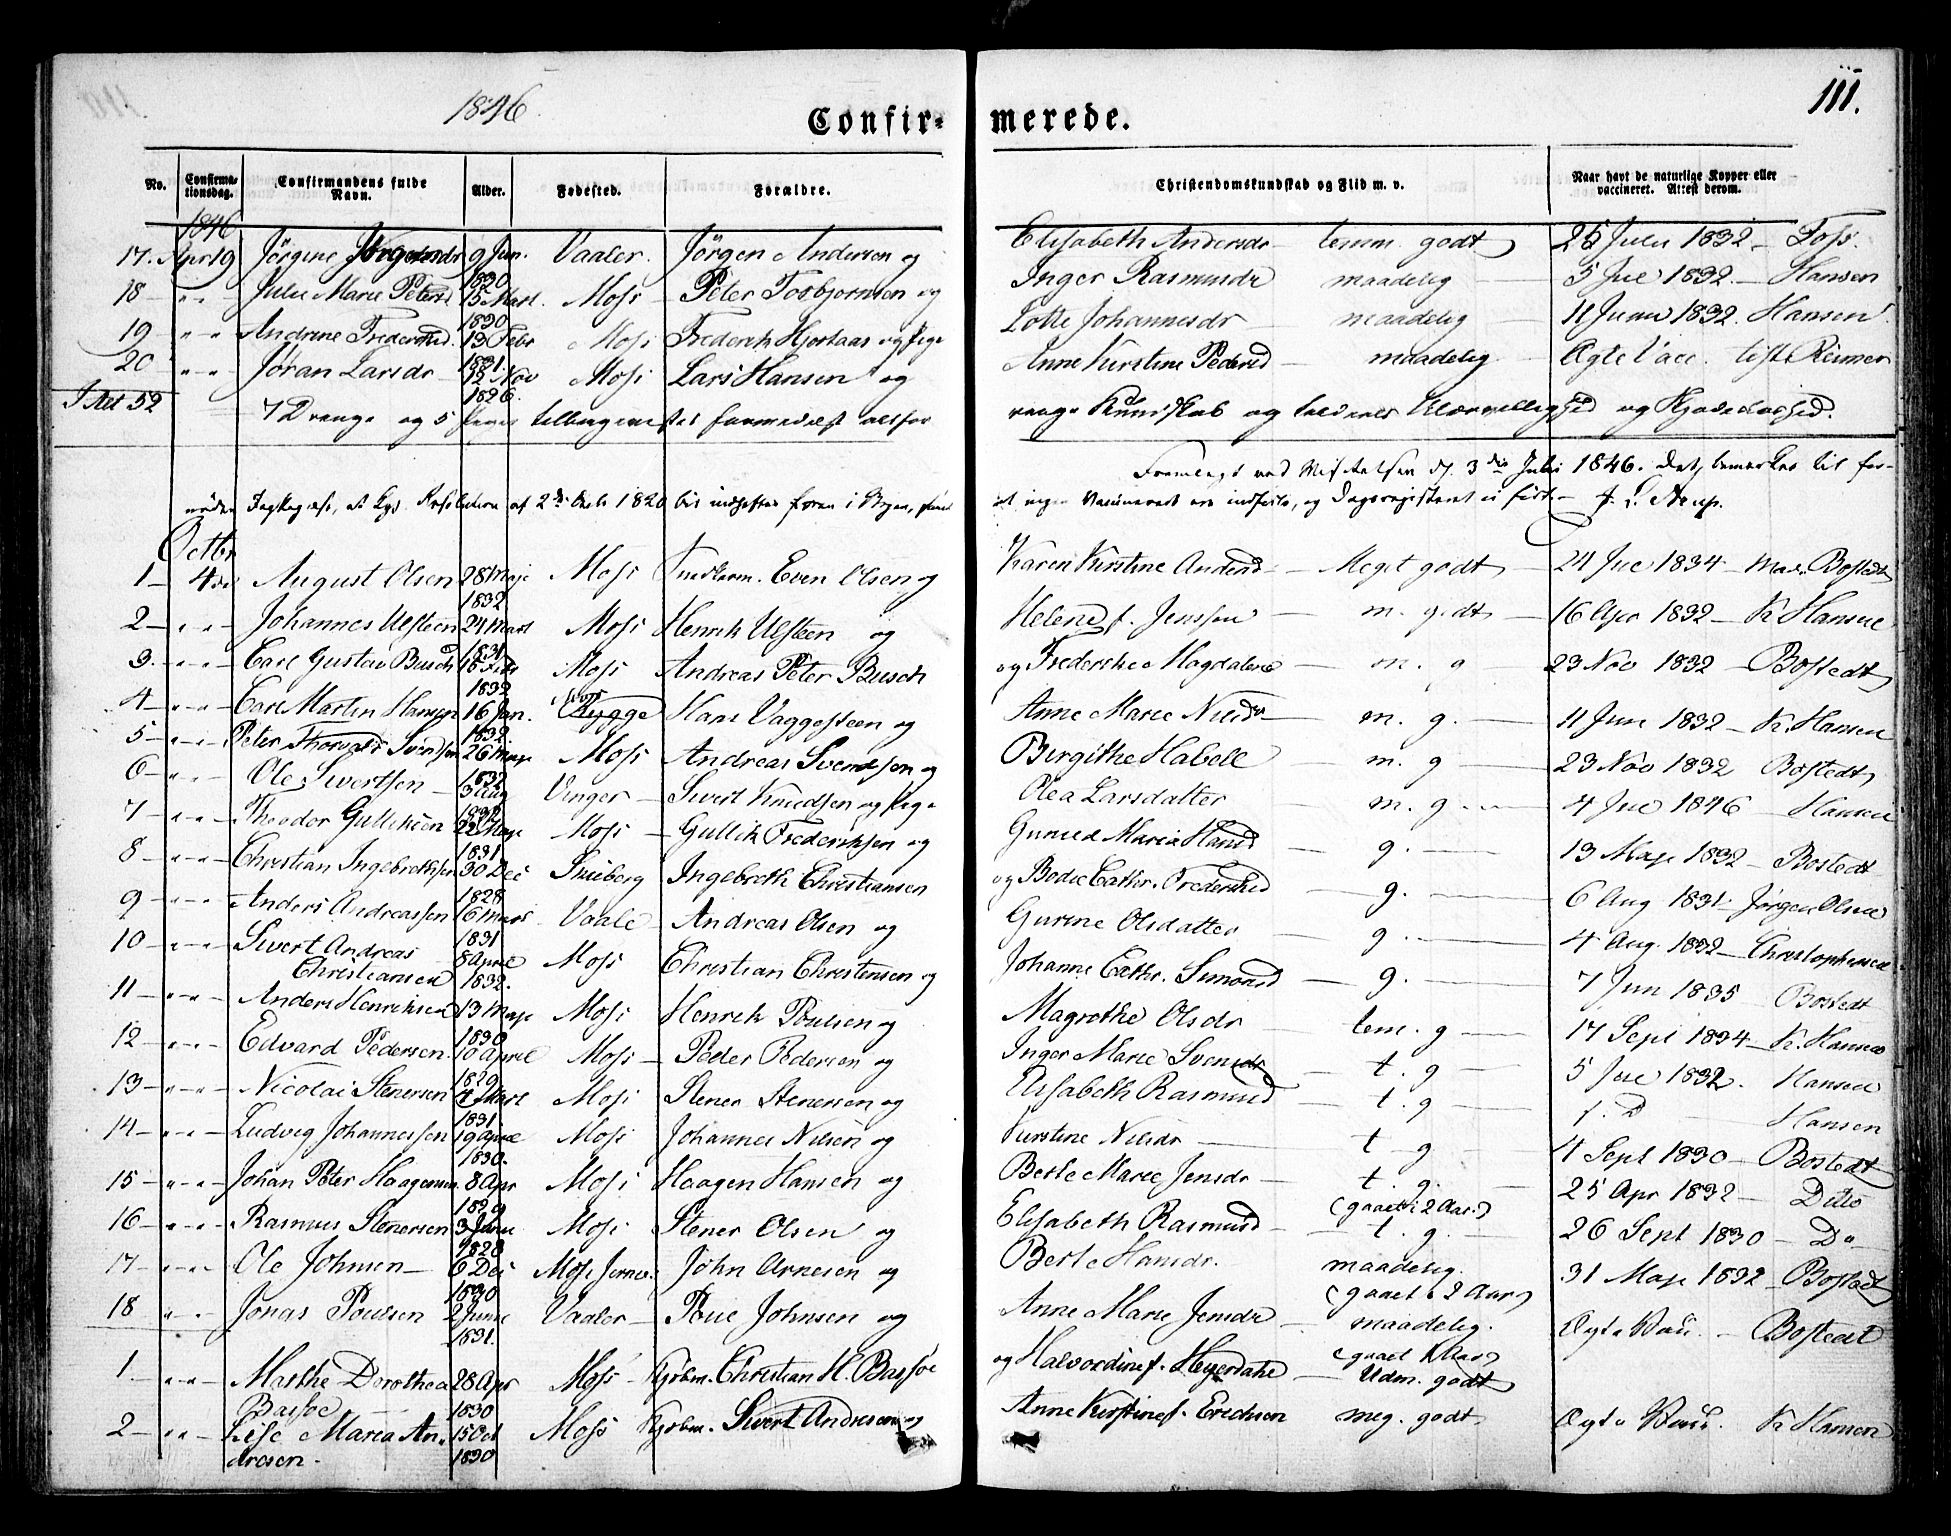 1846
111.
Confirmerede.
No. Confirmationsdag. Confirmandens fulde Navn. Alder. Fødested. Forældre. Christendomskundskab og Flid m. v. Naar havt de naturlige Kopper eller vaccineret. Attest derom.
1846
17. Apr 19 Jörgine 9 Jan. 1830 Vaaler. Jörgen Andersen og Elisabeth Andersdr temm. godt 25 Juli 1832 Foss.
18 " " Julie Marie Peters 15 Mart. 1830 Moss Peter Torbjornsen og Inger Rasmusdr maadelig 5 Jul 1832. Hansen
19 " " Andrine Fredriksd. 13 Febr 1831 Moss Frederik og Pige Lotte Johannesdr maadelig 11 Juni 1832. Hansen
20 " " Jöran Larsdr 12 Nov 1826. Moss Lars Hansen og Anne Kirstine Pedersd maadelig Ægte Vacc. Reimer
I Alt 52
7 Drenge og 5 Piger formedelst altfor ringe Kundskab og og
Fremlagt ved Visitatsen d. 3die Juli 1846. Det bemærkes
af 2de 1820 i Bogen, og Dagsregisteret ei
Octbr
1 4de August Olsen 28 Maje 1832 Moss Even Olsen og Karen Kirstine Andersd Meget godt 24 Jul 1834 Bostedt
2 " " Johannes Ulsteen 24 Mart 1831 Moss Henrik Ulsteen og Helene f. Jenssen m. godt 16 Apr 1832 K Hansen
3. " " Carl Gustav Busch 18 Febr 1832 Moss Andreas Peter Busch og Frederikke Magdalene m. g 23 Nov 1832 Bostedt
4 " " Carl Martin Hansen 16 Jan. 1832 Rygge Hans Vaggesteen og Anne Marie Nilsdr m. g. 11 Juni 1832 K. Hansen
5 " " Peter Thorvald Svendsen 26 Maje 1832 Moss Andreas Svendsen og Birgithe Habell m. g 23 Nov 1832 Bostedt
6 " " Ole Sivertsen 3 Aug 1832 Vinger Sivert Knudsen og Pige Olea Larsdatter m. g. 4 Jul 1846 Hansen
7 " " Theodor Gulliksen 22 Maje 1831 Moss Gullik Frederiksen og Gunild Maria Hansd g. 13 Maje 1832 Bostedt
8 " " Christian Ingebrethsen 30 Dec 1828 Skieberg Ingebreth Christiansen og Bodil Cathr. Frederiksd g. 6 Aug 1831 Jörgen Olsen
9 " " Anders Andreassen 16 Mart 1831 Vaale Andreas Olsen og Gurine Olsdatter g. 4 Aug. 1832 Christophersen
10 " " Sivert Andreas Christiansen 8 April 1832. Moss Christian Christensen og Johanne Cathr. Simonsd g. 7 Jun 1835 Bostedt
11 " " Anders Henriksen 13 Maje 1830 Moss Henrik Poulsen og Magrethe Olsdr tem. g 17 Sept 1834 K. Hansen
12 " " Edvard Pedersen 10 April 1829 Moss Peder Pedersen og Inger Marie Svensdr t. g 5 Jul 1832. Hansen
13 " " Nicolai Stenersen 4 Mart 1831 Moss Stener Stenersen og Elisabeth Rasmusd t. g Hansen
14 " " Ludvig Johannessen 19 April 1830. Moss Johannes Nilsen og Kirstine Nilsdr t g 4 Sept 1830 Bostedt
15 " " Johan Peter Haagensen 8 Apr 1829 Moss Haagen Hansen og Berte Marie Jensdr t. g. (gaaet i 2 Aar) 25 Apr 1832 Ditto
16 " " Rasmus Stenersen 3 Juni 1828 Moss Stener Olsen og Elisabeth Rasmusd t. g. 26 Sept 1830 Do
17 " " Ole Johnsen 6 Dec 1830 Moss Jernv. John Arnesen og Berte Hansdr. maadelig. (gaaet i 2 Aar) 31 Maje 1832 Bostedt
18 " " Jonas Poulsen 2 Juni 1831. Vaaler Poul Johnsen og Anne Marie Jensdr maadelig. (gaaet 1 Aar) Ægte Vacc. Bostedt
1 " " Marthe Dorothea Bassöe 28 Apr 1830 Moss Kjöbm. Christian H. Bassöe og Halvordine f. Heyerdahl Udm. godt
2 " " Lise Maria Andresen. 15 Oct 1830 Moss Kjöbm. Sivert Andresen og Anne Kirstine f. Erichsen meg. godt Ægte Vacc. K Hansen